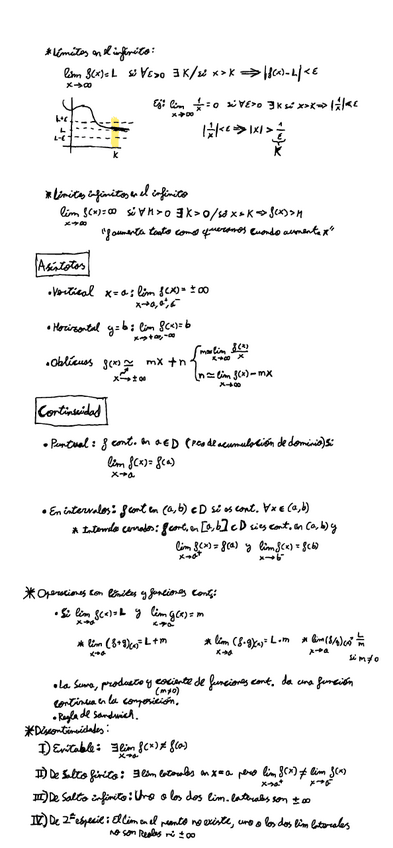 * Límites en el infinito:
lim f(x)=L si ∀ε>0 ∃K/si x>K ⟹ |f(x)-L|<ε
x→∞
L+ε
L
L-ε
K
Ej: lim 1/x = 0 si ∀ε>0 ∃K si x>K ⟹ |1/x|<ε
x→∞
|1/x|<ε ⟹ |x| > 1/ε
K
* Límites infinitos en el infinito
lim f(x)=∞ si ∀M>0 ∃K>0/si x>K ⟹ f(x)>M
x→∞
"f aumenta tanto como queramos cuando aumenta x"
Asíntotas
• Vertical x=a: lim f(x)=±∞
x→a, a⁺, a⁻
• Horizontal y=b: lim f(x)=b
x→+∞,-∞
• Oblicuas f(x) ≃ mx+n { m≃lim f(x)/x
x→±∞ x→∞
n≃lim f(x)-mx
x→∞
Continuidad
• Puntual: f cont. en a∈D (pto de acumulación de dominio) si
lim f(x)=f(a)
x→a
• En intervalos: f cont en (a,b)⊂D si es cont. ∀x∈(a,b)
* Intervalo cerrado: f cont. en [a,b]⊂D si es cont. en (a,b) y
lim f(x)=f(a) y lim f(x)=f(b)
x→a⁺ x→b⁻
* Operaciones con límites y funciones cont:
• Si lim f(x)=L y lim g(x)=m
x→a x→a
* lim (f+g)(x)=L+m * lim (f·g)(x)=L·m * lim (f/g)(x)=L/m
x→a x→a x→a si m≠0
• La suma, producto y cociente de funciones cont. da una función
(m≠0)
continua en la composición.
• Regla de Sandwich.
* Discontinuidades:
I) Evitable: ∃lim f(x)≠f(a)
x→a
II) De Salto finito: ∃ lim laterales en x=a pero lim f(x)≠lim f(x)
x→a⁺ x→a⁻
III) De Salto infinito: Uno o los dos lim. laterales son ±∞
IV) De 2ª especie: El lim en el punto no existe, uno o los dos lim laterales
no son Reales ni ±∞